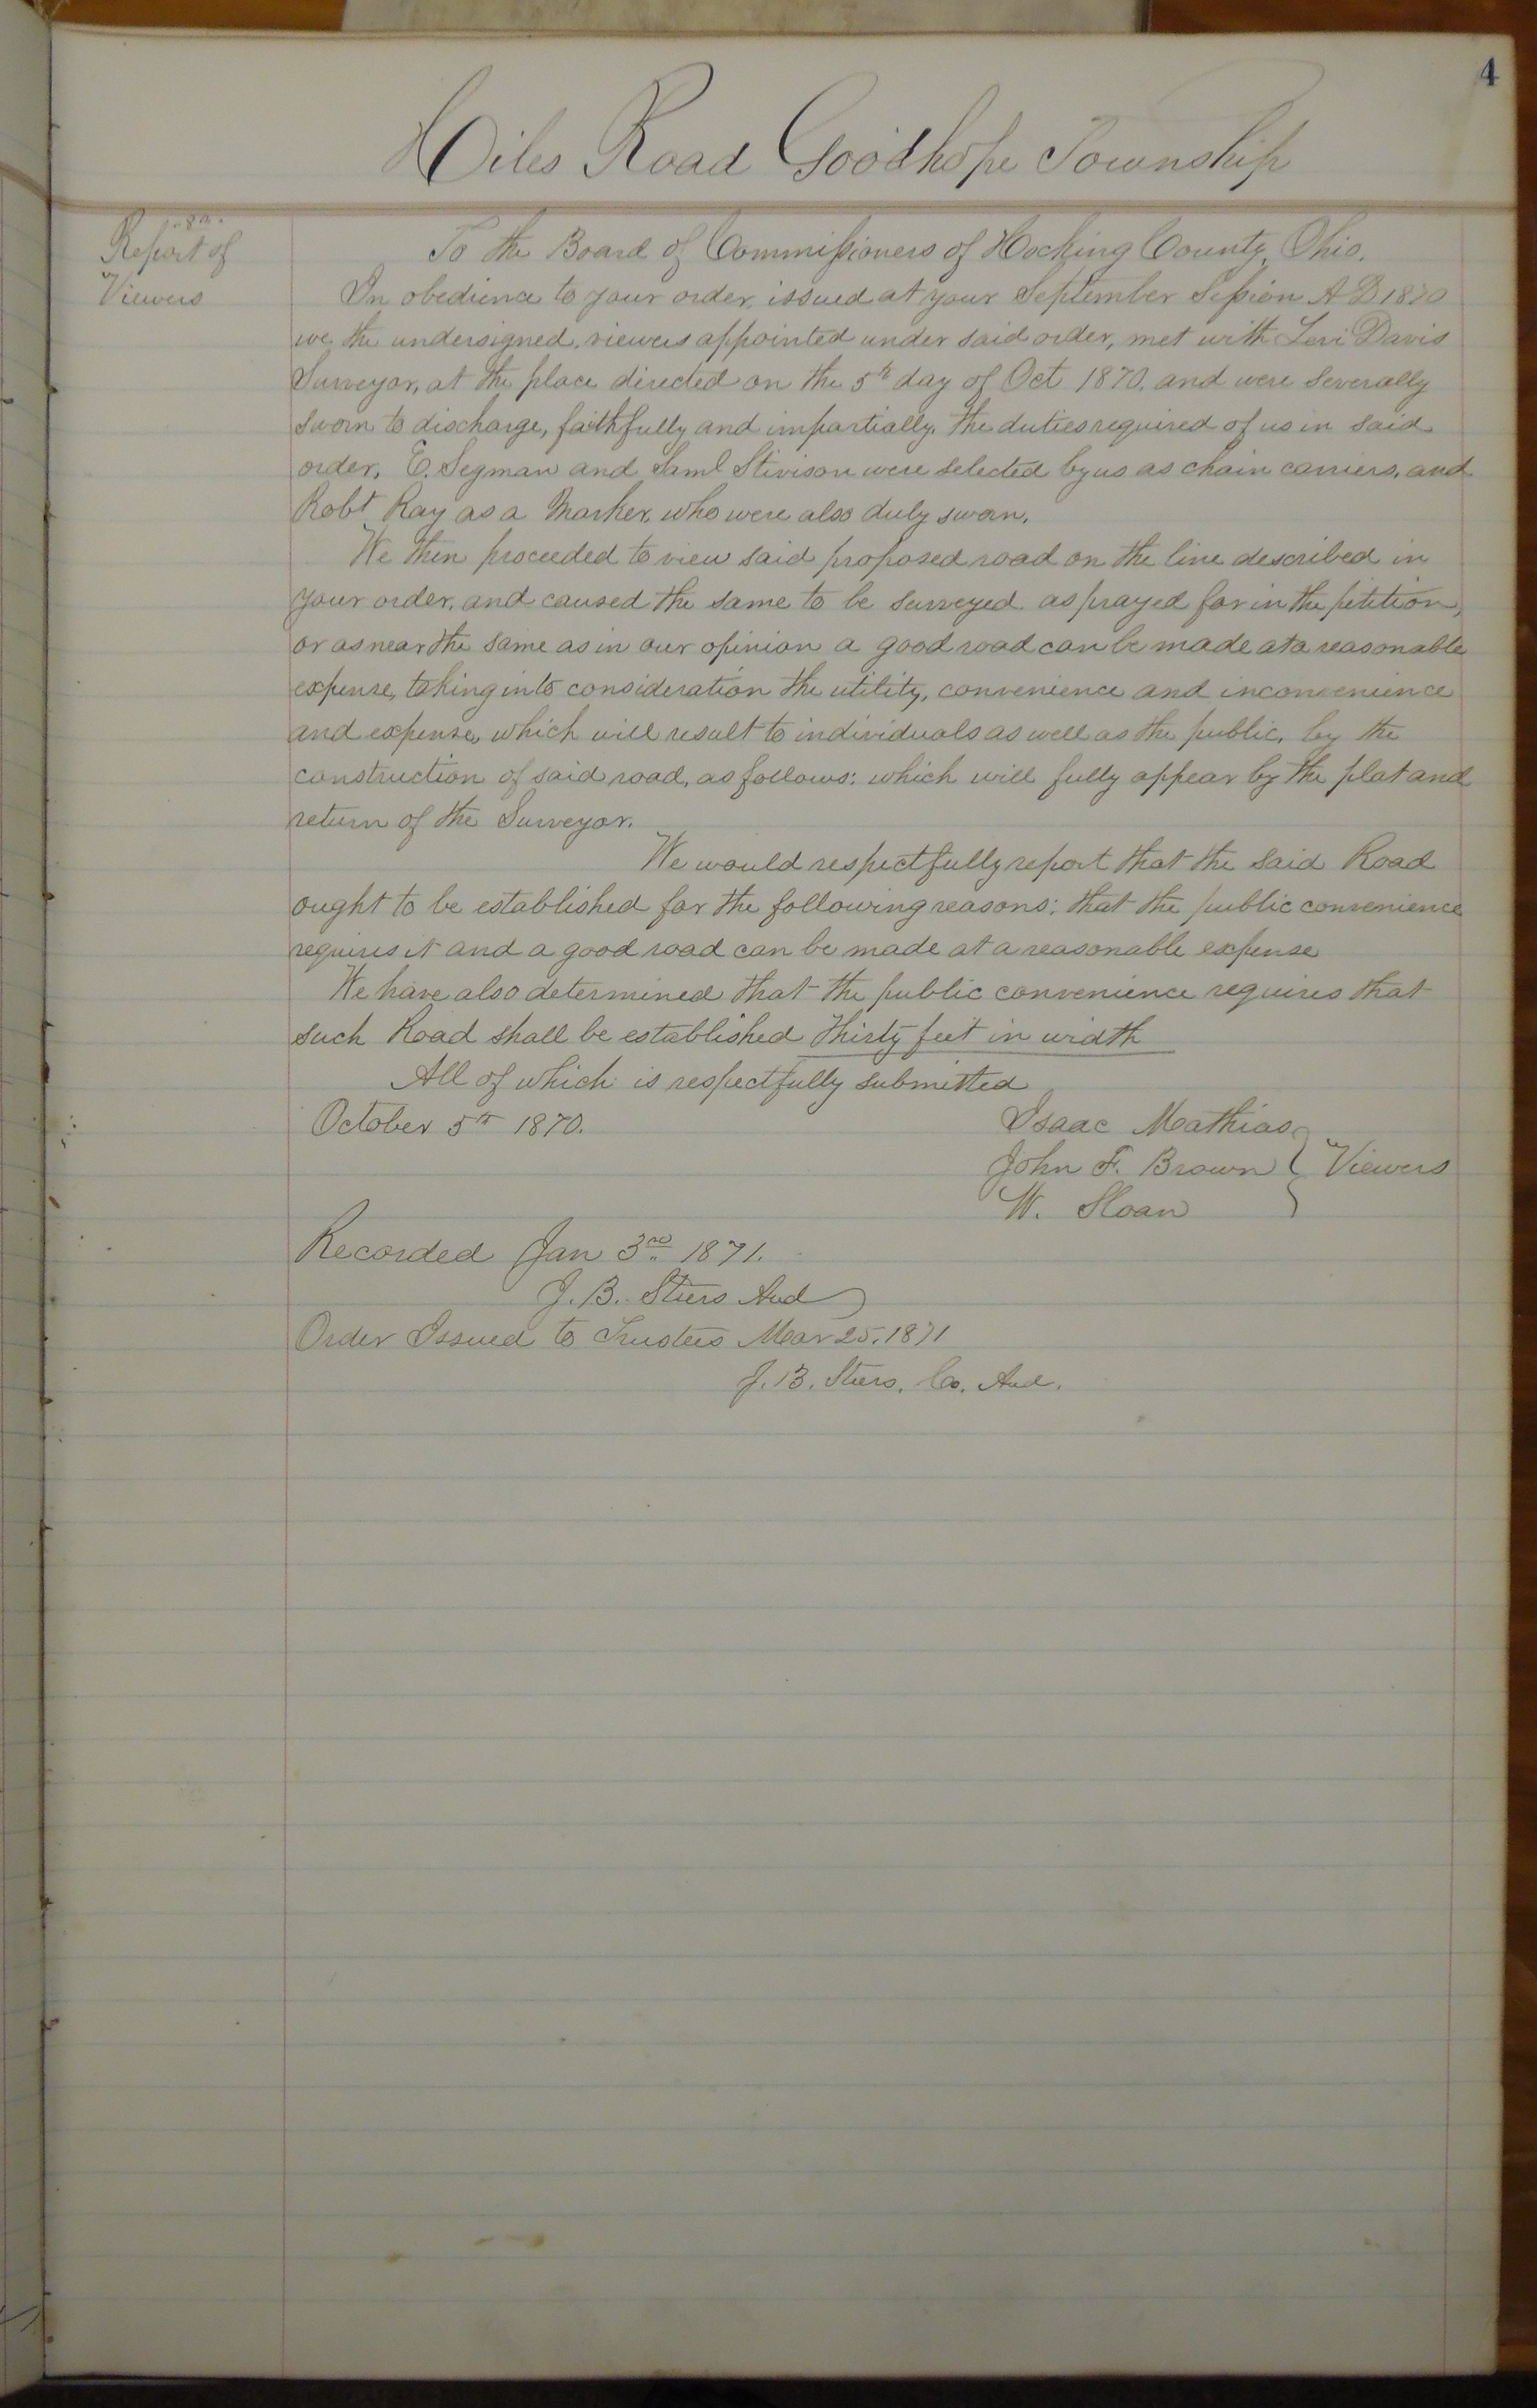 4
Hiles Road Goodhope Township
8th
Report of
Viewers
To the Board of Commissioners of Hocking County, Ohio.
In obedience to your order, issued at your September Session A.D 1870
we, the undersigned, viewers appointed under said order, met with Levi Davis
Surveyor, at the place directed on the 5th day of Oct 1870, and were severally
sworn to discharge, faithfully and impartially, the duties required of us in said
order, E. Segman and Saml Stivison were selected by us as chain carriers, and
Robt Ray as a Marker, who were also duly sworn.
We then proceeded to view said proposed road on the line described in
your order, and caused the same to be surveyed as prayed for in the petition,
or as near the same as in our opinion a good road can be made at a reasonable
expense, taking into consideration the utility, convenience and inconvenience
and expense, which will result to individuals as well as the public, by the
construction of said road, as follows: which will fully appear by the plat and
return of the Surveyor.
We would respectfully report that the said Road
ought to be established for the following reasons: that the public convenience
requires it and a good road can be made at a reasonable expense
We have also determined that the public convenience requires that
such Road shall be established thirty feet in width
All of which is respectfully submitted
October 5th 1870.
Isaac Mathias
John F. Brown } Viewers
W. Sloan
Recorded Jan 3rd 1871.
J. B. Stiers Aud
Order Issued to Trustees Mar 25. 1871
J. B. Stiers. Co. Aud.